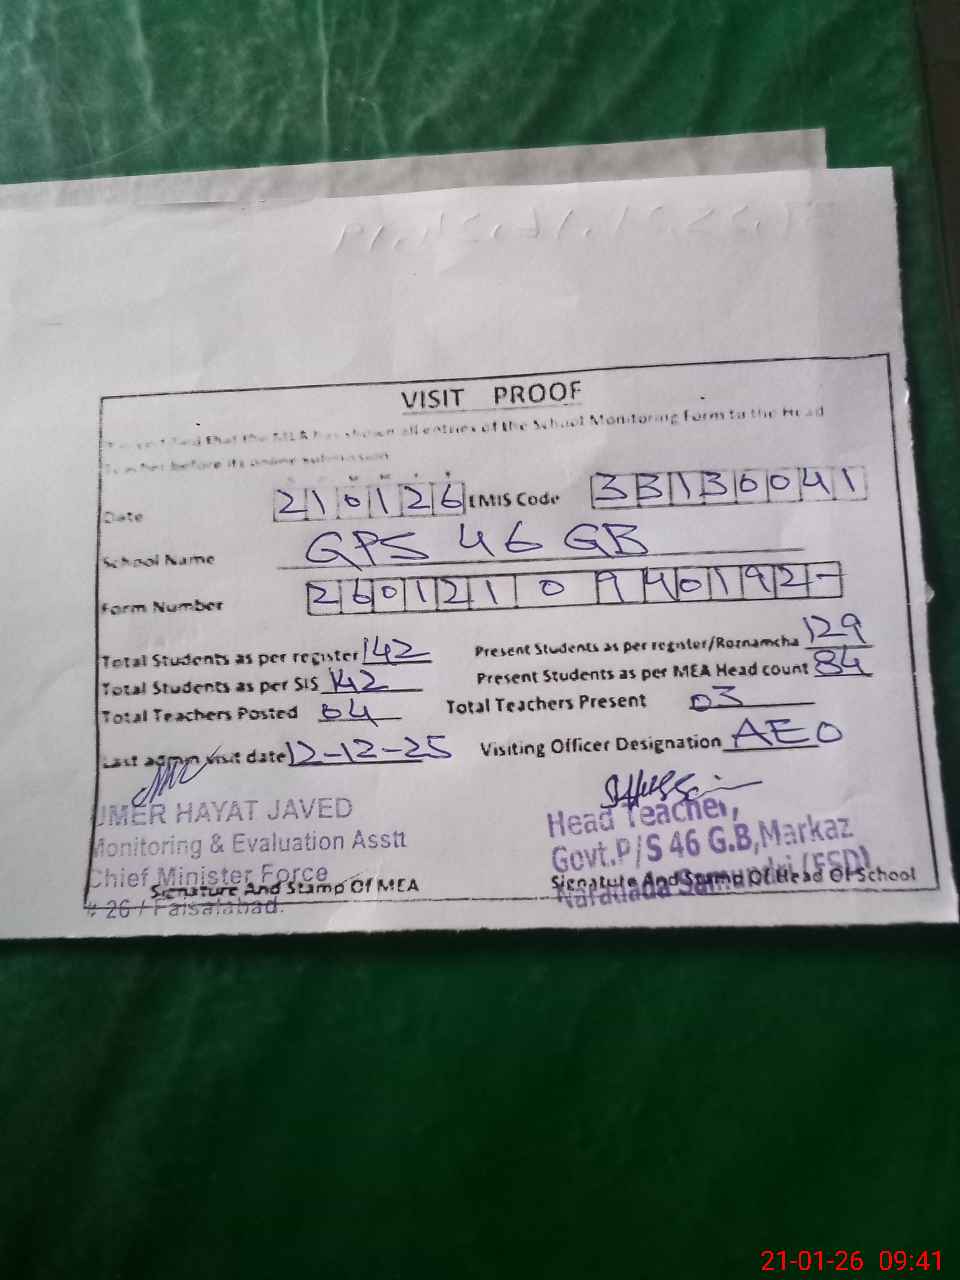 VISIT PROOF
that the MEA has shown all entries of the School Monitoring Form to the Head
before its online submission
Date 210126 EMIS Code 33130041
School Name GPS 46 GB
Form Number 2601210940192-
Total Students as per register 142 Present Students as per register/Roznamcha 129
Total Students as per SIS 142 Present Students as per MEA Head count 84
Total Teachers Posted 04 Total Teachers Present 03
Last admin visit date 12-12-25 Visiting Officer Designation AEO
UMER HAYAT JAVED
Monitoring & Evaluation Asstt
Chief Minister Force
Signature And Stamp Of MEA
# 26 / Faisalabad.
Head Teacher,
Govt.P/S 46 G.B,Markaz
(FSD)
Signature And Stamp Of Head Of School
21-01-26 09:41